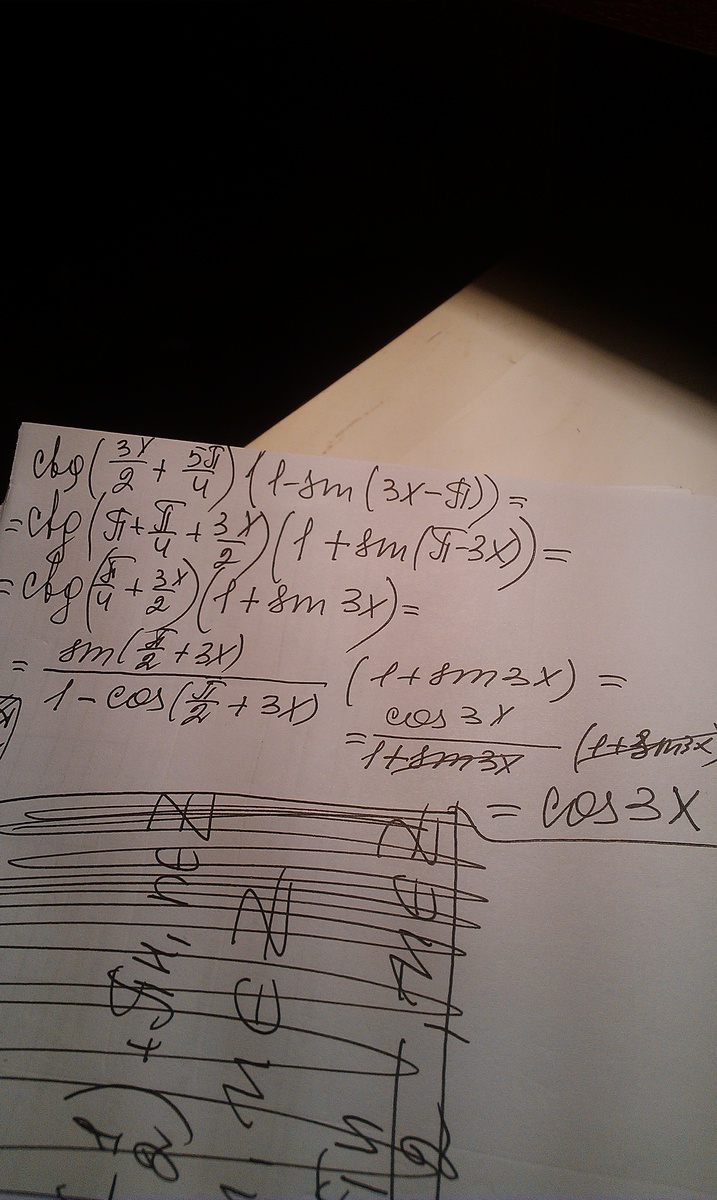 ctg(3x/2 + 5π/4)(1-sin(3x-π))=
=ctg(π+π/4+3x/2)(1+sin(π-3x))=
=ctg(π/4+3x/2)(1+sin 3x)=
=sin(π/2+3x)/(1-cos(π/2+3x)) (1+sin3x)=
=cos 3x/(1+sin3x) (1+sin3x)
=cos3x
+πn, n∈Z
n∈Z
, n∈Z